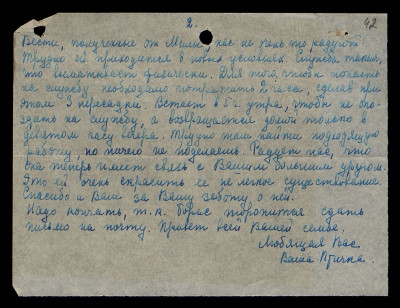 2.
42
Вести, полученные от Милы, нас не очень то радуют
Трудно ей приходится в новых условиях. Служба такая,
что выматывает физически. Для того, чтобы попасть
на службу необходимо потратить 2 часа, сделав при
этом 3 пересадки. Встает в 5 г. утра, чтобы не опо-
здать на службу, а возвращается домой только в
девятом часу вечера. Трудно там найти подходящую
работу, но ничего не поделаешь. Радует нас, что
она теперь имеет связь с Вашим большим другом.
Это ей очень скрасит ее не легкое существование.
Спасибо и Вам за Вашу заботу о ней.
Надо кончать, т.к. Борис торопится сдать
письмо на почту. Привет всей Вашей семье.
Любящая Вас
Ваша